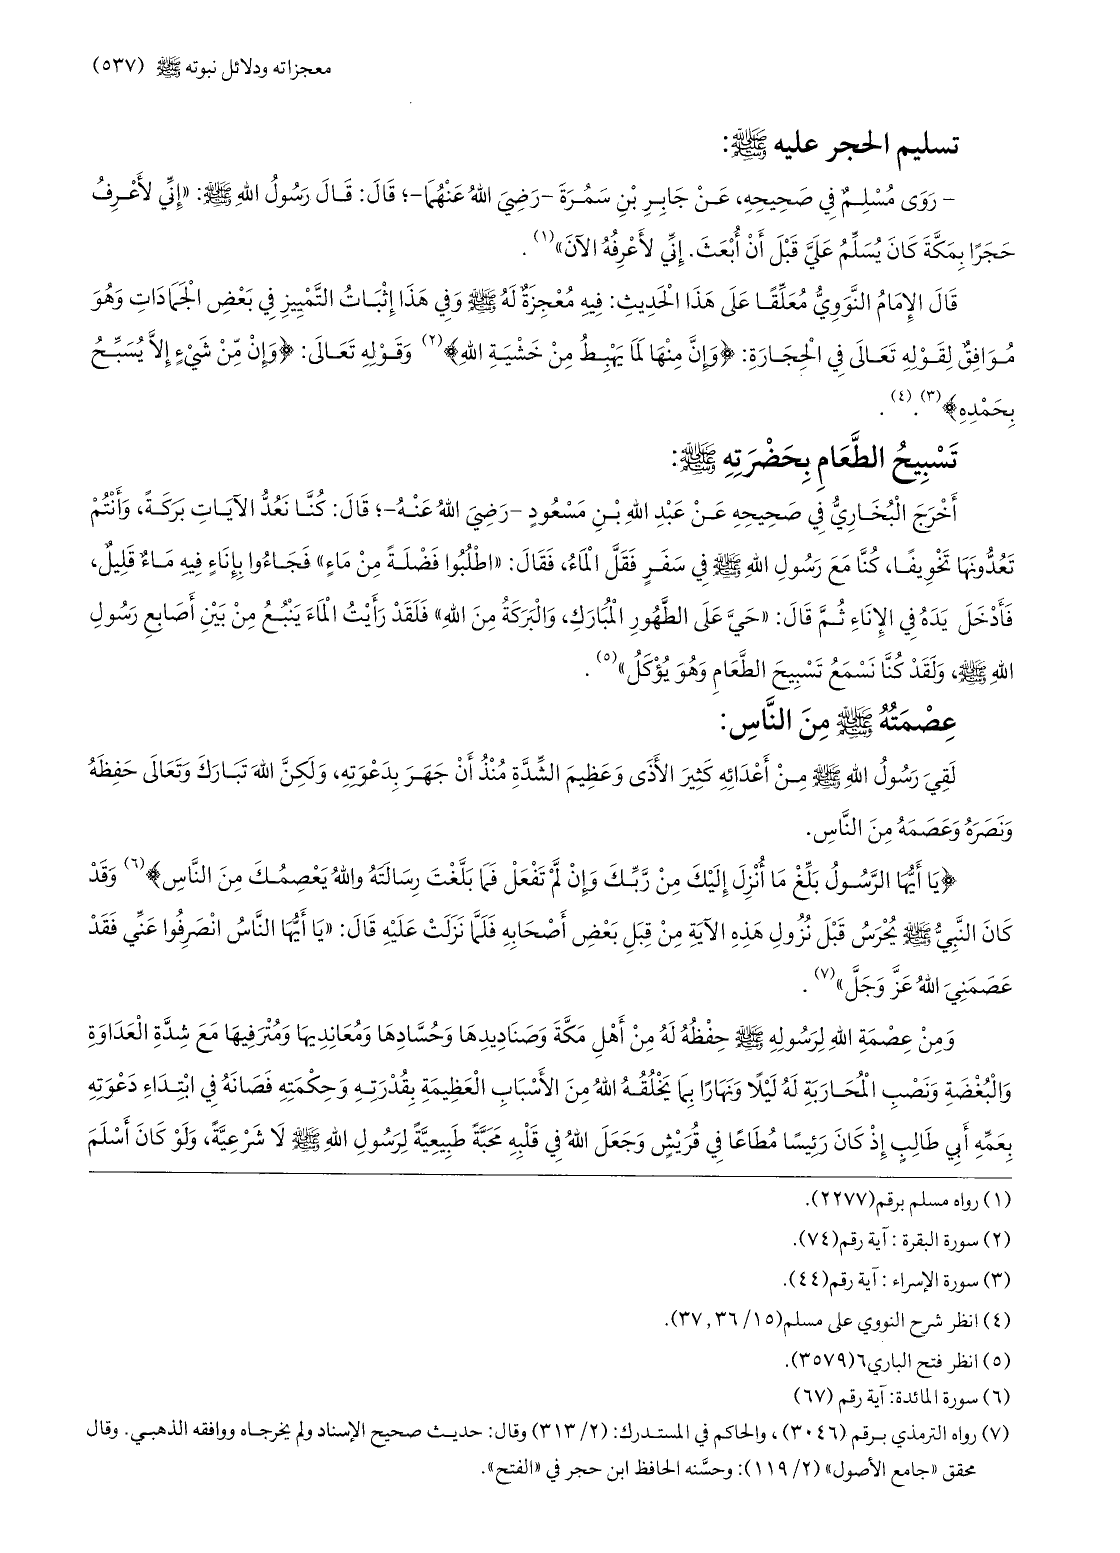 معجزاته ودلائل نبوته ﷺ (٥٣٧)
تسليم الحجر عليه ﷺ:
- رَوَى مُسْلِمٌ فِي صَحِيحِهِ، عَنْ جَابِرِ بْنِ سَمُرَةَ -رَضِيَ اللهُ عَنْهُمَا-؛ قَالَ: قَالَ رَسُولُ اللهِ ﷺ: «إِنِّي لأَعْرِفُ
حَجَرًا بِمَكَّةَ كَانَ يُسَلِّمُ عَلَيَّ قَبْلَ أَنْ أُبْعَثَ. إِنِّي لأَعْرِفُهُ الآنَ»(١) .
قَالَ الإِمَامُ النَّوَوِيُّ مُعَلِّقًا عَلَى هَذَا الْحَدِيثِ: فِيهِ مُعْجِزَةٌ لَهُ ﷺ وَفِي هَذَا إِثْبَاتُ التَّمْيِيزِ فِي بَعْضِ الْجَمَادَاتِ وَهُوَ
مُوَافِقٌ لِقَوْلِهِ تَعَالَى فِي الْحِجَارَةِ: ﴿وَإِنَّ مِنْهَا لَمَا يَهْبِطُ مِنْ خَشْيَةِ اللهِ﴾(٢) وَقَوْلِهِ تَعَالَى: ﴿وَإِنْ مِّنْ شَيْءٍ إِلاَّ يُسَبِّحُ
بِحَمْدِهِ﴾(٣).(٤) .
تَسْبِيحُ الطَّعَامِ بِحَضْرَتِهِ ﷺ:
أَخْرَجَ الْبُخَارِيُّ فِي صَحِيحِهِ عَنْ عَبْدِ اللهِ بْنِ مَسْعُودٍ -رَضِيَ اللهُ عَنْهُ-؛ قَالَ: كُنَّا نَعُدُّ الآيَاتِ بَرَكَةً، وَأَنْتُمْ
تَعُدُّونَهَا تَخْوِيفًا، كُنَّا مَعَ رَسُولِ اللهِ ﷺ فِي سَفَرٍ فَقَلَّ الْمَاءُ، فَقَالَ: «اطْلُبُوا فَضْلَةً مِنْ مَاءٍ» فَجَاءُوا بِإِنَاءٍ فِيهِ مَاءٌ قَلِيلٌ،
فَأَدْخَلَ يَدَهُ فِي الإِنَاءِ ثُمَّ قَالَ: «حَيَّ عَلَى الطَّهُورِ الْمُبَارَكِ، وَالْبَرَكَةُ مِنَ اللهِ» فَلَقَدْ رَأَيْتُ الْمَاءَ يَنْبُعُ مِنْ بَيْنِ أَصَابِعِ رَسُولِ
اللهِ ﷺ، وَلَقَدْ كُنَّا نَسْمَعُ تَسْبِيحَ الطَّعَامِ وَهُوَ يُؤْكَلُ»(٥) .
عِصْمَتُهُ ﷺ مِنَ النَّاسِ:
لَقِيَ رَسُولُ اللهِ ﷺ مِنْ أَعْدَائِهِ كَثِيرَ الأَذَى وَعَظِيمَ الشِّدَّةِ مُنْذُ أَنْ جَهَرَ بِدَعْوَتِهِ، وَلَكِنَّ اللهَ تَبَارَكَ وَتَعَالَى حَفِظَهُ
وَنَصَرَهُ وَعَصَمَهُ مِنَ النَّاسِ.
﴿يَا أَيُّهَا الرَّسُولُ بَلِّغْ مَا أُنْزِلَ إِلَيْكَ مِنْ رَّبِّكَ وَإِنْ لَّمْ تَفْعَلْ فَمَا بَلَّغْتَ رِسَالَتَهُ واللهُ يَعْصِمُكَ مِنَ النَّاسِ﴾(٦) وَقَدْ
كَانَ النَّبِيُّ ﷺ يُحْرَسُ قَبْلَ نُزُولِ هَذِهِ الآيَةِ مِنْ قِبَلِ بَعْضِ أَصْحَابِهِ فَلَمَّا نَزَلَتْ عَلَيْهِ قَالَ: «يَا أَيُّهَا النَّاسُ انْصَرِفُوا عَنِّي فَقَدْ
عَصَمَنِيَ اللهُ عَزَّ وَجَلَّ»(٧) .
وَمِنْ عِصْمَةِ اللهِ لِرَسُولِهِ ﷺ حِفْظُهُ لَهُ مِنْ أَهْلِ مَكَّةَ وَصَنَادِيدِهَا وَحُسَّادِهَا وَمُعَانِدِيهَا وَمُتْرَفِيهَا مَعَ شِدَّةِ الْعَدَاوَةِ
وَالْبُغْضَةِ وَنَصْبِ الْمُحَارَبَةِ لَهُ لَيْلًا وَنَهَارًا بِمَا يَخْلُقُهُ اللهُ مِنَ الأَسْبَابِ الْعَظِيمَةِ بِقُدْرَتِهِ وَحِكْمَتِهِ فَصَانَهُ فِي ابْتِدَاءِ دَعْوَتِهِ
بِعَمِّهِ أَبِي طَالِبٍ إِذْ كَانَ رَئِيسًا مُطَاعًا فِي قُرَيْشٍ وَجَعَلَ اللهُ فِي قَلْبِهِ مَحَبَّةً طَبِيعِيَّةً لِرَسُولِ اللهِ ﷺ لَا شَرْعِيَّةً، وَلَوْ كَانَ أَسْلَمَ
(١) رواه مسلم برقم(٢٢٧٧).
(٢) سورة البقرة : آية رقم(٧٤).
(٣) سورة الإسراء : آية رقم(٤٤).
(٤) انظر شرح النووي على مسلم(١٥/ ٣٦, ٣٧).
(٥) انظر فتح الباري٦(٣٥٧٩).
(٦) سورة المائدة: آية رقم (٦٧)
(٧) رواه الترمذي برقم (٣٠٤٦) ، والحاكم في المستدرك: (٢/ ٣١٣) وقال: حديث صحيح الإسناد ولم يخرجاه ووافقه الذهبي. وقال
محقق «جامع الأصول» (٢/ ١١٩): وحسَّنه الحافظ ابن حجر في «الفتح».